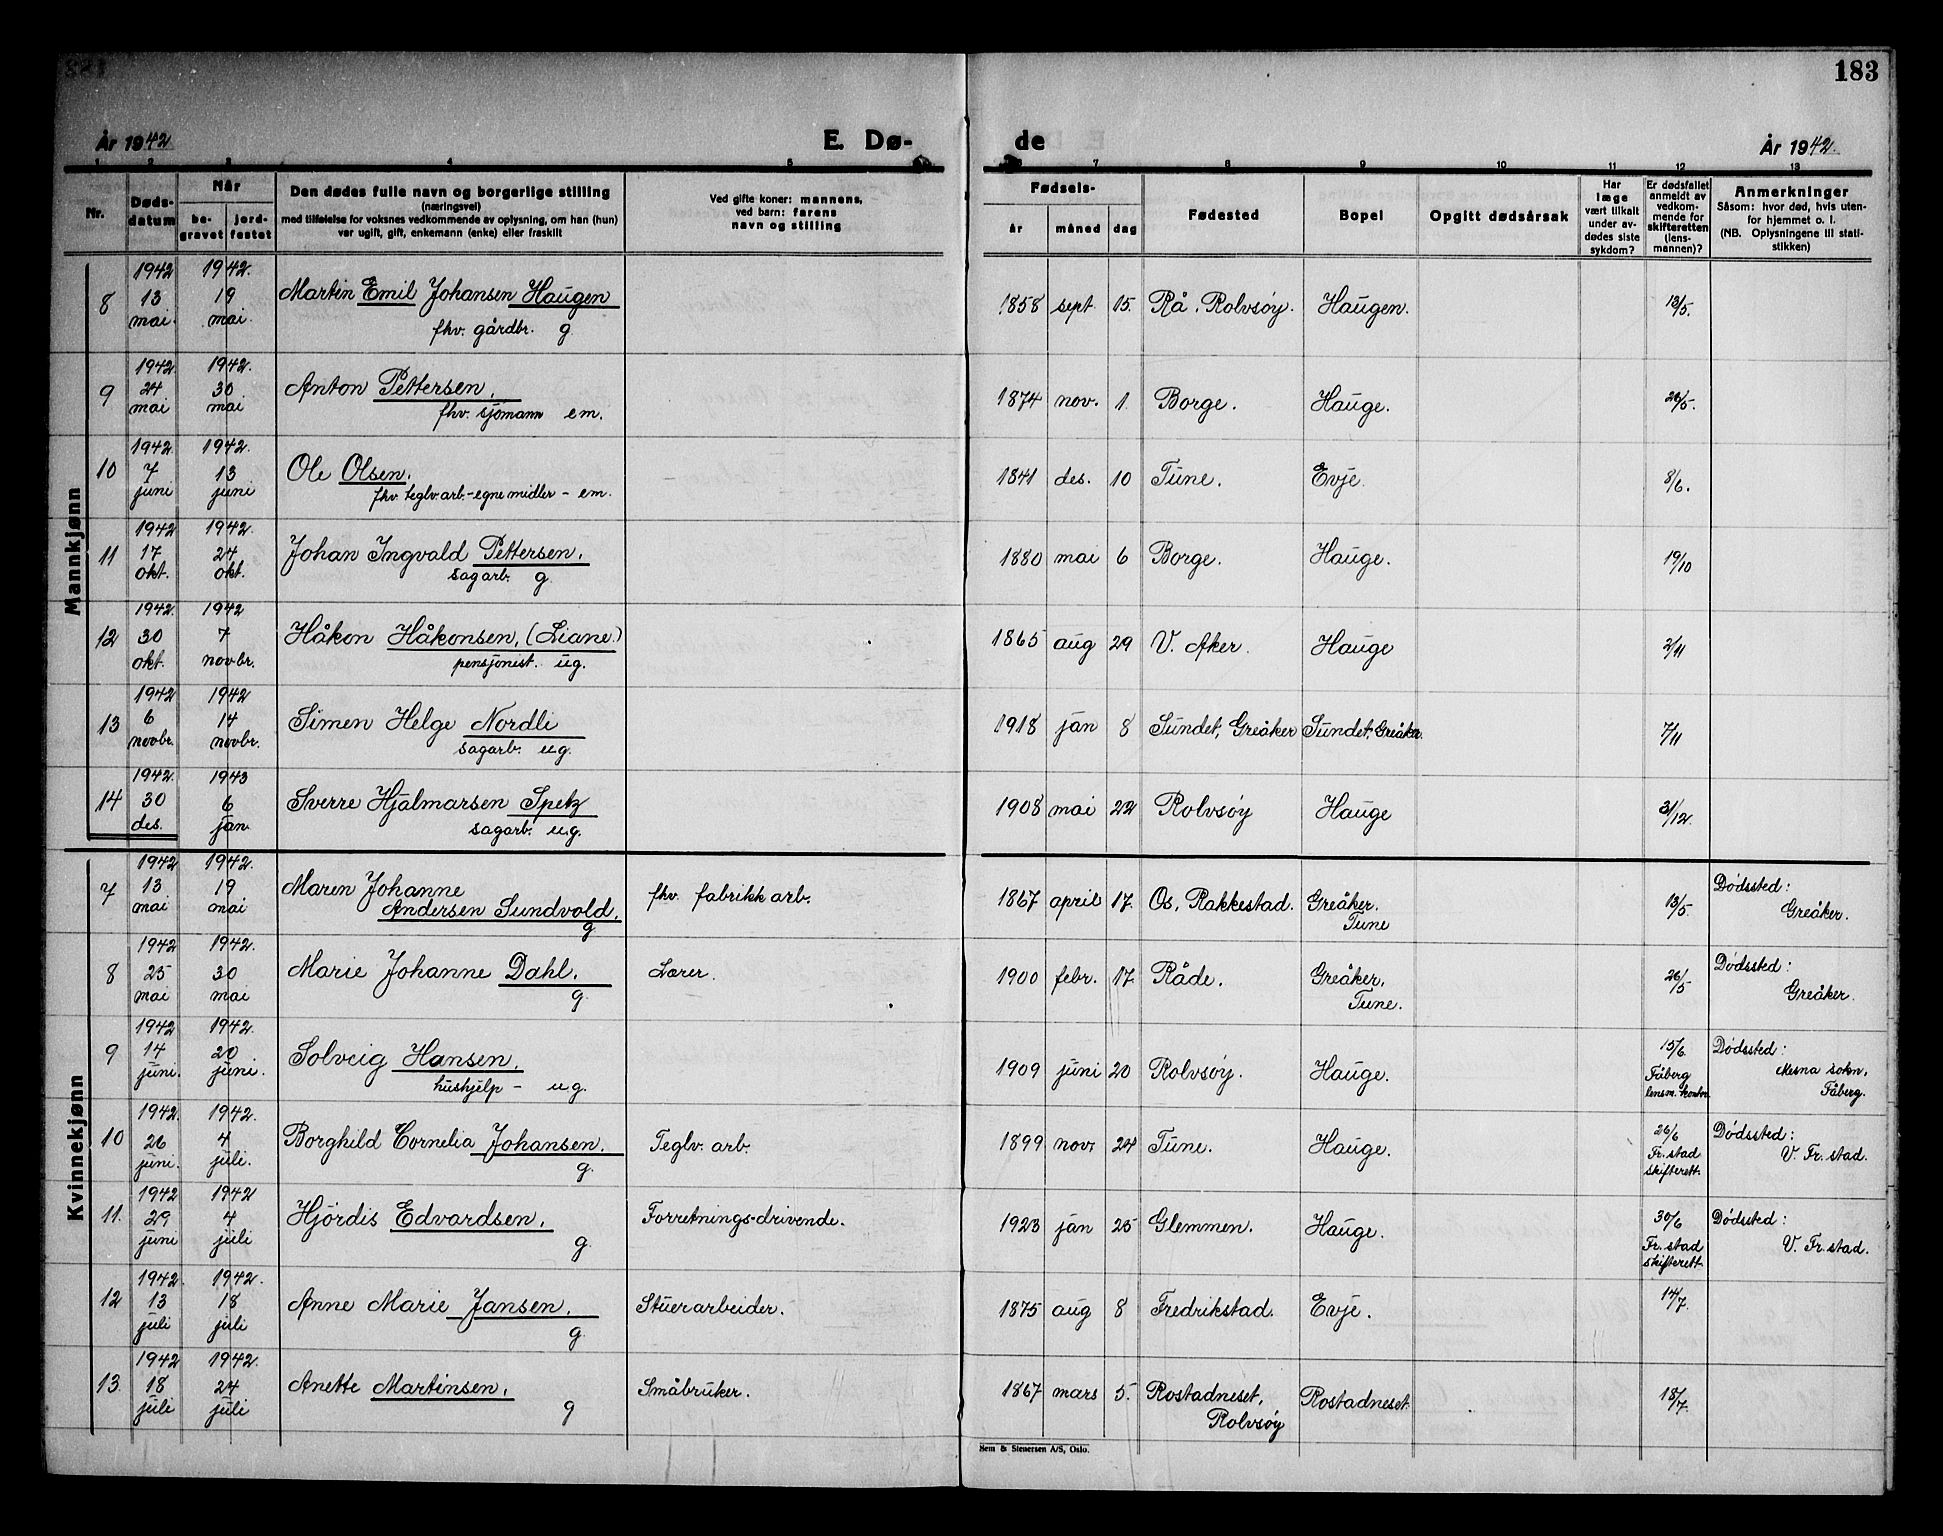 183
År 1942
E. Dø-
de
År 1942.
1 2 3 4 5 6 7 8 9 10 11 12 13
Nr.
Døds-
datum
Når
be-
gravet
jord-
festet
Den dødes fulle navn og borgerlige stilling
(næringsvei)
med tilføielse for voksnes vedkommende av oplysning, om han (hun)
var ugift, gift, enkemann (enke) eller fraskilt
Ved gifte koner: mannens,
ved barn: farens
navn og stilling
Fødsels-
år
måned
dag
Fødested
Bopel
Opgitt dødsårsak
Har
læge
vært tilkalt
under av-
dødes siste
sykdom?
Er dødsfallet
anmeldt av
vedkom-
mende for
skifteretten
(lens-
mannen)?
Anmerkninger
Såsom: hvor død, hvis uten-
for hjemmet o. l.
(NB. Oplysningene til stati-
stikken)
Mannkjønn
8 1942 13 mai. 1942. 19 mai. Martin Emil Johansen Haugen 1858 sept. 15. Rå, Rolvsöy. Haugen. 13/5.
fhv. gårdbr. g
9 1942. 24 mai 1942. 30 mai Anton Pettersen. 1874 nov. 1. Borge. Hauge. 26/5.
fhv. sjömann em.
10 1942. 7 juni 1942. 13 juni Ole Olsen. 1841 des. 10 Tune. Evje. 8/6.
fhv. teglv. arb. - egne midler - em.
11 1942 17 okt. 1942. 24 okt. Johan Ingvald Pettersen. 1880 mai 6 Borge. Hauge. 19/10
sagarb. g.
12 1942. 30 okt. 1942 7 novbr. Håkon Håkonsen, (Liane.) 1865 aug 29 V. Aker. Hauge 2/11
pensjonist. ug.
13 1942 6 novbr. 1942 14 novbr. Simen Helge Nordli 1918 jan 8 Sundet, Greåker Sundet, Greåker. 7/11
sagarb. ug.
14 1942. 30 des. 1943 6 jan. Sverre Hjalmarsen Spetz 1908 mai 22 Rolvsöy Hauge 31/12.
sagarb. ug.
Kvinnekjønn
7 1942 13 mai 1942. 19 mai Maren Johanne fhv. fabrikk arb. 1867 april 17. Os, Rakkestad. Greåker. Tune 13/5. Dödssted: Greåker.
Andersen Sundvold.
g
8 1942 25 mai 1942. 30 mai Marie Johanne Dahl. Lærer. 1900 febr. 17. Råde. Greåker, Tune. 26/5 Dödssted: Greåker.
g.
9 1942 14 juni. 1942. 20 juni. Solveig Hansen. 1909 juni 20 Rolvsöy. Hauge. 15/6. Fåberg lensm. kontor. Dödssted: Mesna sokn, Fåberg.
hushjelp - ug.
10 1942. 26 juni. 1942. 4 juli. Borghild Cornelia Johansen. Teglv. arb. 1899 nov. 24 Tune. Hauge. 26/6 Fr. stad skifterett Dödssted: V. Fr. stad.
g.
11. 1942 29 juni 1942 4 juli Hjördis Edvardsen. Forretnings-drivende. 1923 jan 25 Glemmen. Hauge. 30/6 Fr. stad skifterett. Dödssted: V. Fr. stad.
g
12 1942. 13 juli 1942. 18 juli Anne Marie Jansen. Stuerarbeider. 1875 aug 8 Fredrikstad. Evje. 14/7.
g
13. 1942 18 juli 1942. 24 juli Anette Martinsen. Småbruker. 1867 mars 5. Rostadneset, Rolvsöy Rostadneset. 18/7.
g
Sem & Stenersen A/S, Oslo.